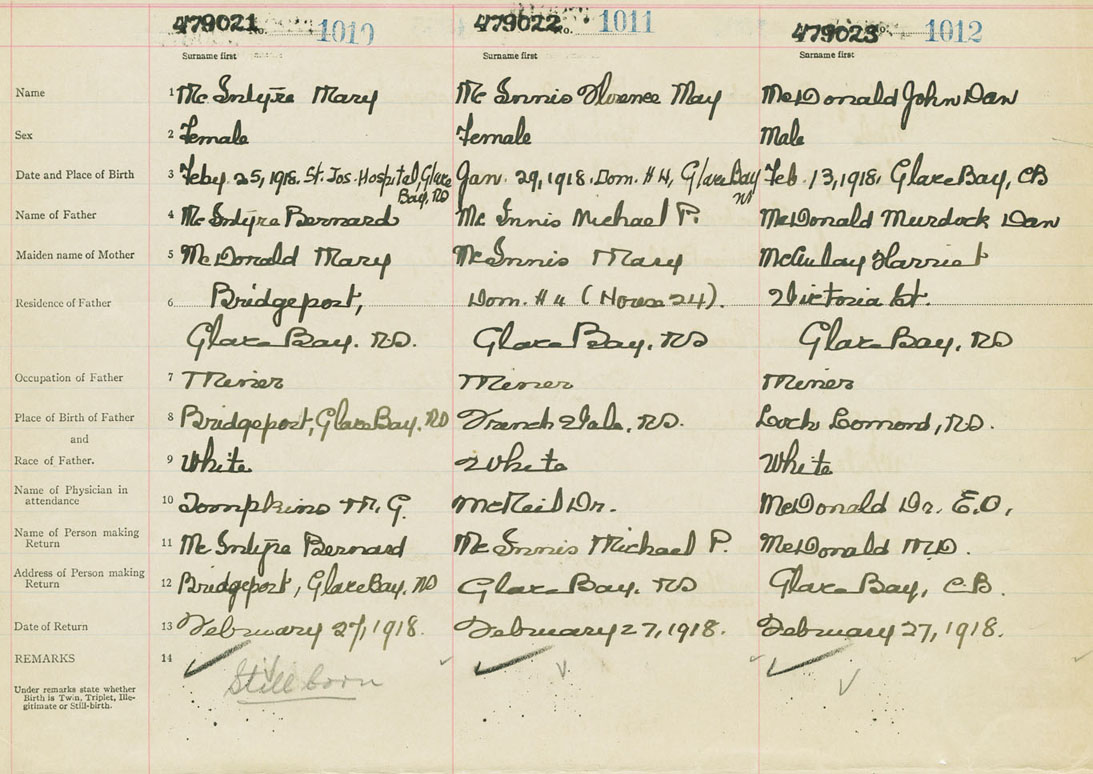 479021 No. 1010 479022 No. 1011 479023 1012
Surname first Surname first Surname first
Name 1 McIntyre Mary McInnis Florence May McDonald John Dan
Sex 2 Female Female Male
Date and Place of Birth 3 Feby. 25, 1918. St. Jos. Hospital, Glace Jan. 29, 1918. Dom. #4, Glace Bay Feb. 13, 1918, Glace Bay, CB
Bay, NS NS
Name of Father 4 McIntyre Bernard McInnis Michael P. McDonald Murdock Dan
Maiden name of Mother 5 McDonald Mary McInnis Mary McAulay Harriet
Residence of Father 6 Bridgeport, Dom. #4 (House 24). Victoria St.
Glace Bay. N.S. Glace Bay. NS Glace Bay, NS
Occupation of Father 7 Miner Miner Miner
Place of Birth of Father 8 Bridgeport, Glace Bay. NS French Vale. NS. Lock Lomond, NS.
and
Race of Father. 9 White White White
Name of Physician in
attendance 10 Tompkins M. G. McNeil Dr. McDonald Dr. E.O.
Name of Person making
Return 11 McIntyre Bernard McInnis Michael P. McDonald M.D.
Address of Person making
Return 12 Bridgeport, Glace Bay. NS Glace Bay. NS Glace Bay, CB.
Date of Return 13 February 27, 1918. February 27, 1918. February 27, 1918.
REMARKS 14
Stillborn
Under remarks state whether
Birth is Twin, Triplet, Ille-
gitimate or Still-birth.